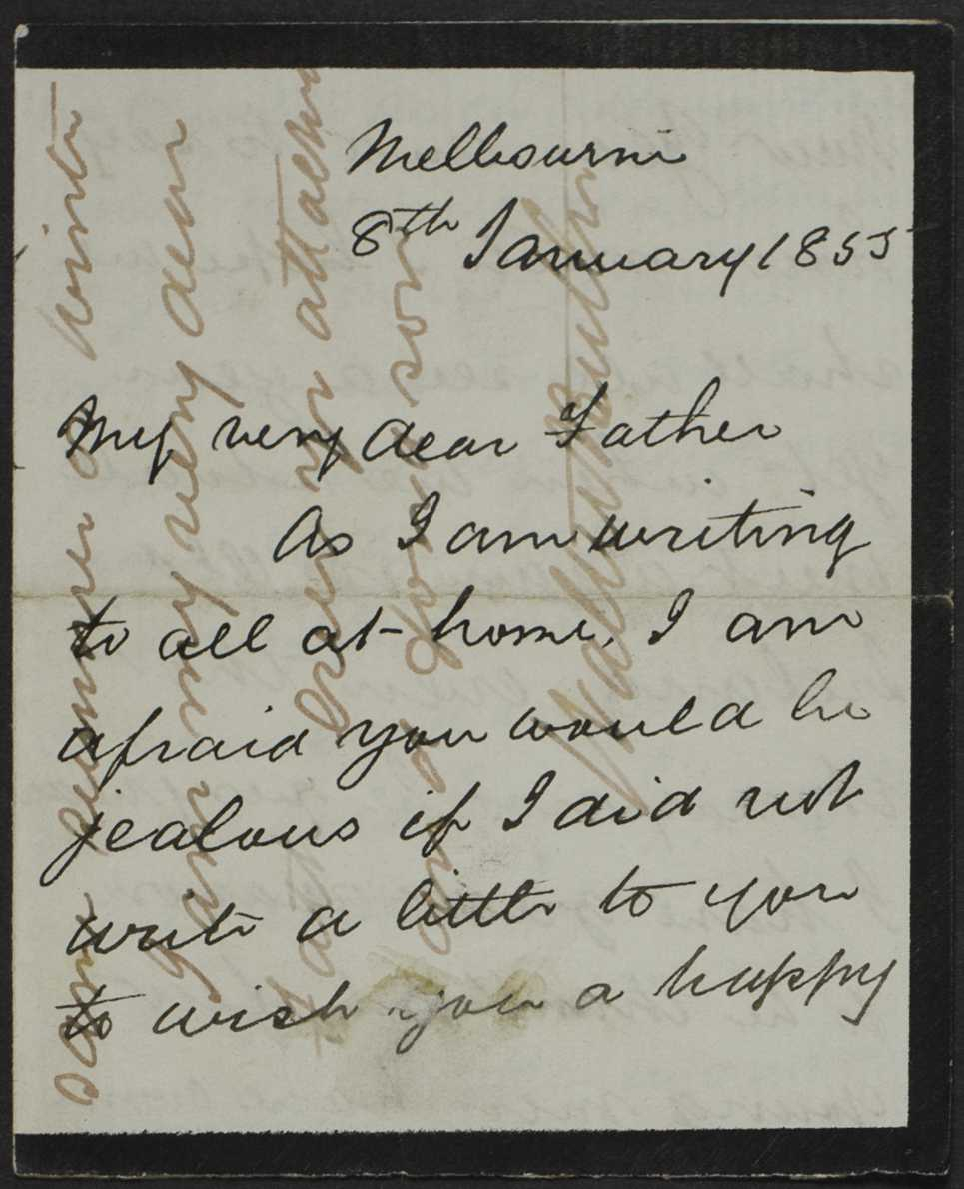 Melbourne
8th January 1855
My very dear Father
As I am writing
to all at home, I am
afraid you would be
jealous if I did not
write a little to you
to wish you a happy
same summer winter
I am my very dear
Father ever yr
son